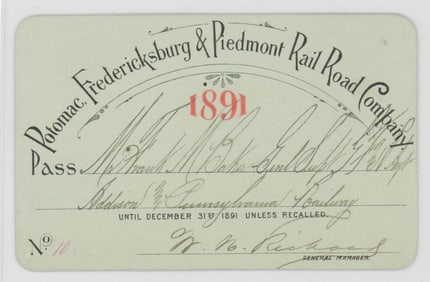 Potomac, Fredericksburg & Piedmont Rail Road Company.
1891
Pass Mr Frank M Baker Genl Supt
Addison & Pennsylvania Railway
UNTIL DECEMBER 31ST 1891 UNLESS RECALLED.
No. 10
W. H. Richards
GENERAL MANAGER.